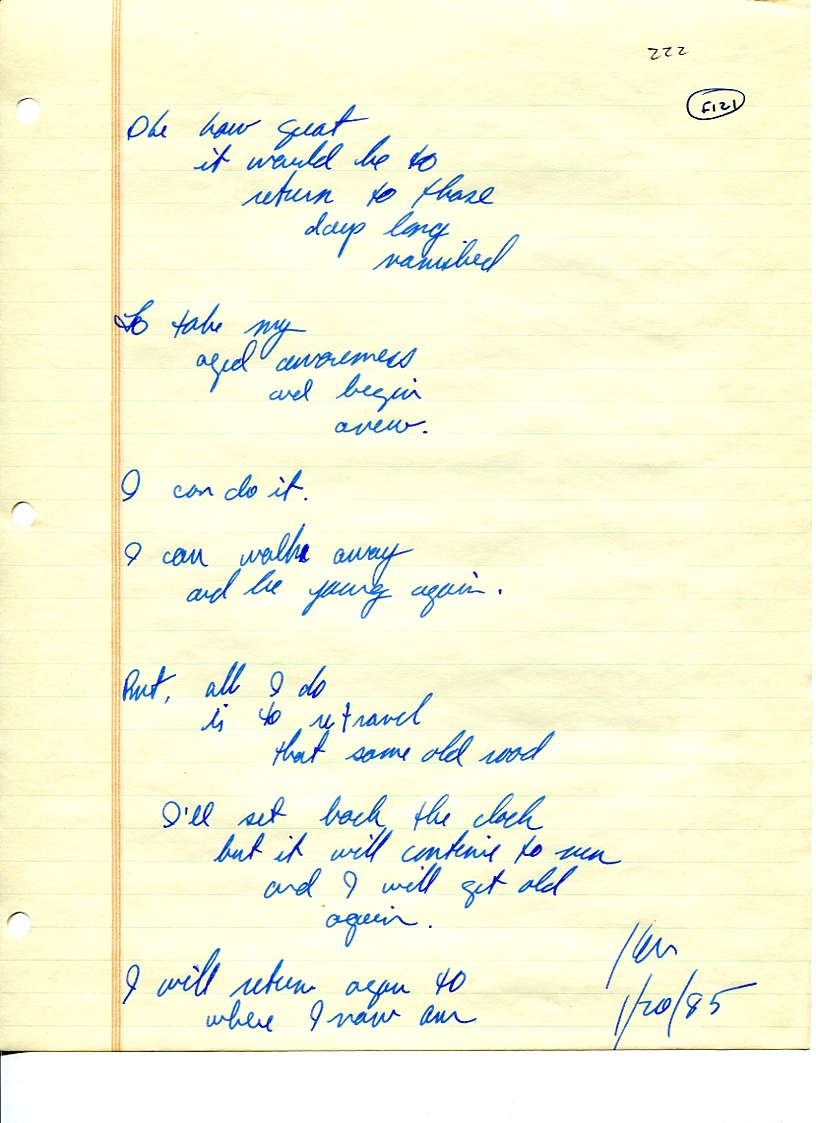 222
F121
Ohe how great
it would be to
return to those
days long
vanished
To take my
aged awareness
and begin
anew.
I can do it.
I can walk away
and be young again.
But, all I do
is to retravel
that same old road
I'll set back the clock
but it will continue to run
and I will get old
again.
I will return again to
where I now am
Ken
1/20/85